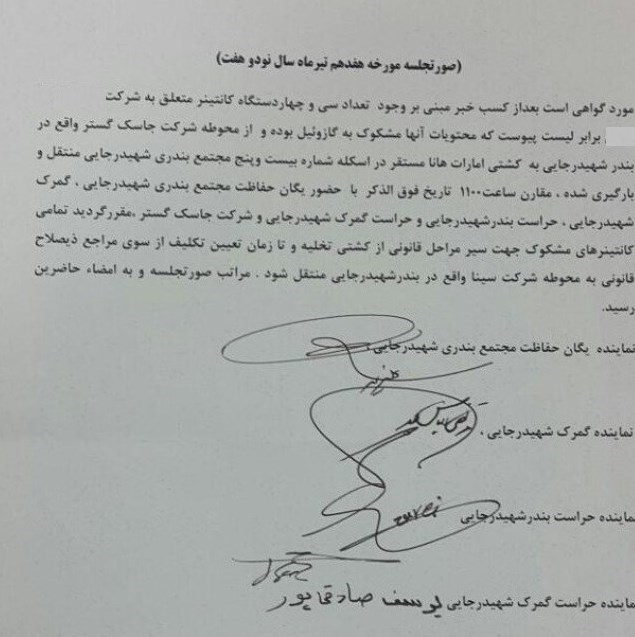 (صورتجلسه مورخه هفدهم تیرماه سال نودو هفت)
مورد گواهی است بعداز کسب خبر مبنی بر وجود تعداد سی و چهاردستگاه کانتینر متعلق به شرکت
برابر لیست پیوست که محتویات آنها مشکوک به گازوئیل بوده و از محوطه شرکت جاسک گستر واقع در
بندر شهیدرجایی به کشتی امارات هانا مستقر در اسکله شماره بیست وپنج مجتمع بندری شهیدرجایی منتقل و
بارگیری شده ، مقارن ساعت۱۱۰۰ تاریخ فوق الذکر با حضور یگان حفاظت مجتمع بندری شهیدرجایی ، گمرک
شهیدرجایی ، حراست بندرشهیدرجایی و حراست گمرک شهیدرجایی و شرکت جاسک گستر ،مقررگردید تمامی
کانتینرهای مشکوک جهت سیر مراحل قانونی از کشتی تخلیه و تا زمان تعیین تکلیف از سوی مراجع ذیصلاح
قانونی به محوطه شرکت سینا واقع در بندرشهیدرجایی منتقل شود . مراتب صورتجلسه و به امضاء حاضرین
رسید.
نماینده یگان حفاظت مجتمع بندری شهیدرجایی ،
نماینده گمرک شهیدرجایی ،
نماینده حراست بندرشهیدرجایی
نماینده حراست گمرک شهیدرجایی یوسف صادقی پور